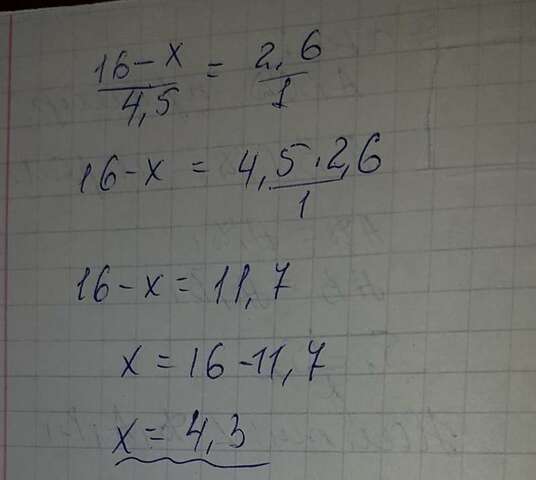 16 - x / 4,5 = 2,6 / 1
16 - x = 4,5 · 2,6 / 1
16 - x = 11,7
x = 16 - 11,7
x = 4,3